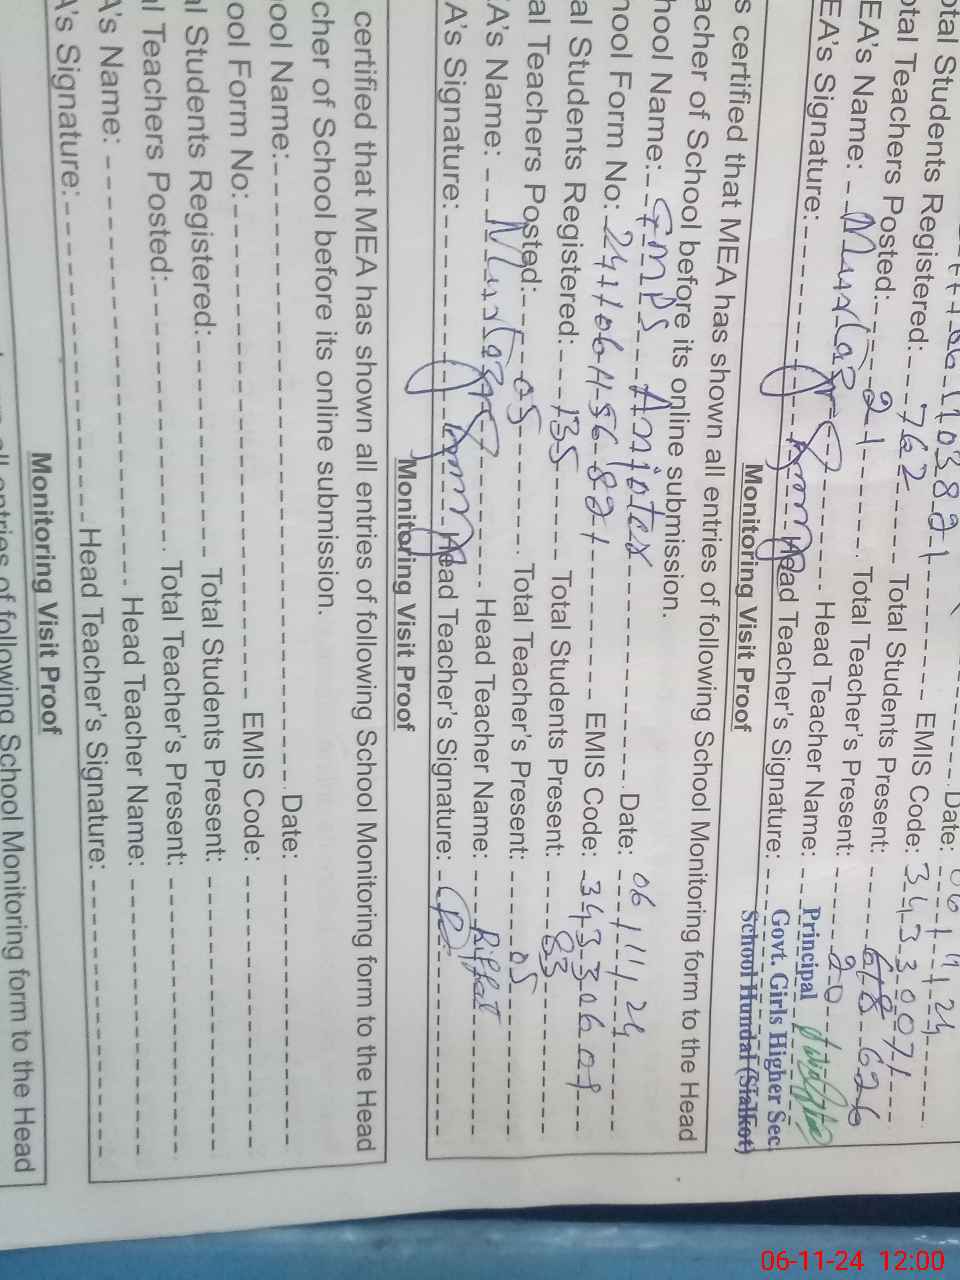 otal Students Registered: 762 Total Students Present: 618 626
otal Teachers Posted: 21 Total Teacher's Present: 20
EA's Name: Head Teacher Name: Principal
EA's Signature: Head Teacher's Signature:
Govt. Girls Higher Sec.
School Hundal (Sialkot)
Monitoring Visit Proof
s certified that MEA has shown all entries of following School Monitoring form to the Head
acher of School before its online submission.
hool Name: GMPS Date: 06/11/24
hool Form No: EMIS Code:
al Students Registered: 135 Total Students Present: 83
al Teachers Posted: 05 Total Teacher's Present: 05
A's Name: Head Teacher Name: Riffat
A's Signature: Head Teacher's Signature:
Monitoring Visit Proof
certified that MEA has shown all entries of following School Monitoring form to the Head
cher of School before its online submission.
ool Name: Date:
ool Form No: EMIS Code:
al Students Registered: Total Students Present:
l Teachers Posted: Total Teacher's Present:
A's Name: Head Teacher Name:
A's Signature: Head Teacher's Signature:
Monitoring Visit Proof
all entries of following School Monitoring form to the Head
06-11-24 12:00